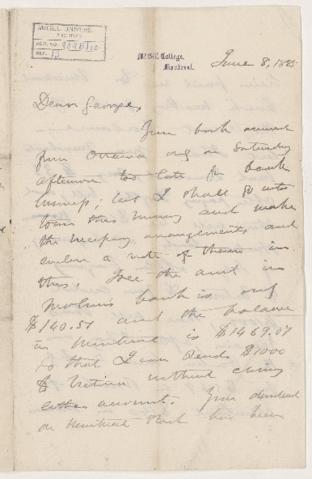 McGILL UNIVERSITY
ARCHIVES
ACC. NO.
REF.
McGill College,
Montreal.
June 8, 1885
Dear George,
Your bank account
from Ottawa only on Saturday
afternoon too late for bank
but I shall
this money and make
the necessary arrangements and
enclose a note of them in
this. The amt in
Molsons bank is only
$140.51 and the balance
in Montreal is $1469.07
so that I can send $1000
to Victoria without closing
either account. Your dividend
on Montreal Stock has been